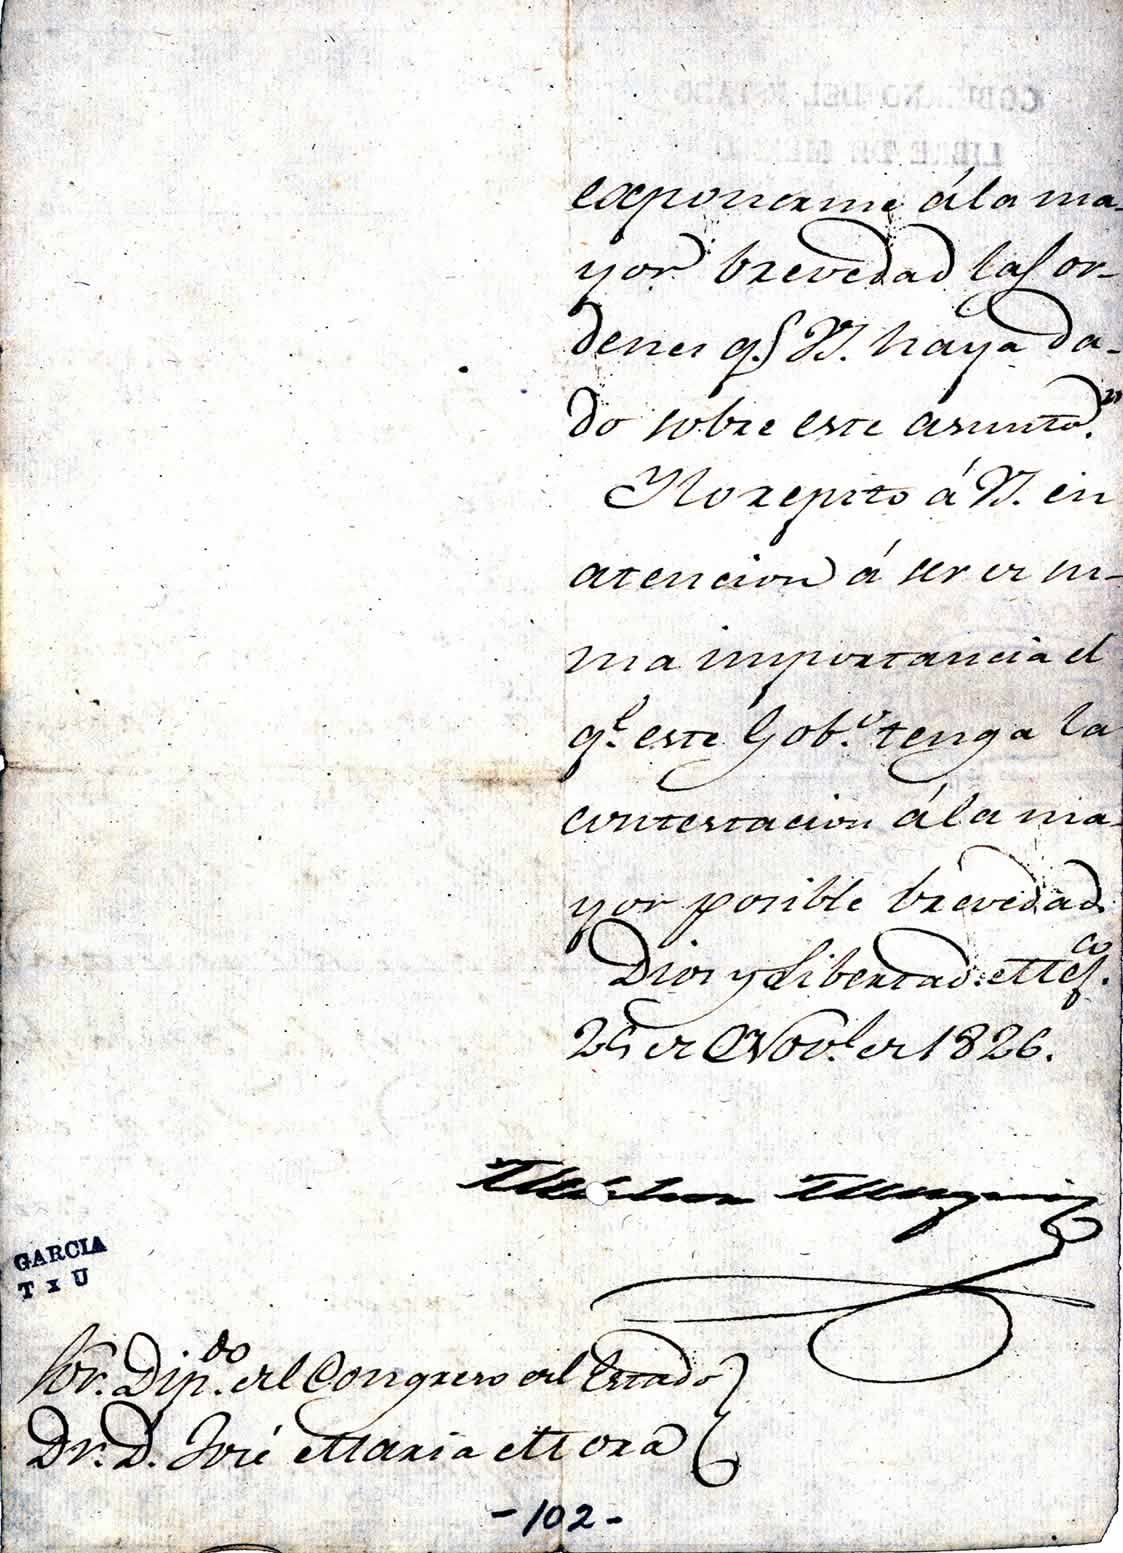 exponerme á la ma-
yor brevedad las or-
denes q.e V. haya da-
do sobre este asunto.
Y lo repito á V. en
atencion á ser de su-
ma importancia el
q.e este Gob.o tenga la
contestacion á la ma-
yor posible brevedad.
Dios y Libertad. Mex.co
de Nov.e de 1826.
Melchor Muzquiz
GARCIA
T x U
Sor. Dip.do del Congreso del Estado
Dr. D. José Maria Mora
-102-